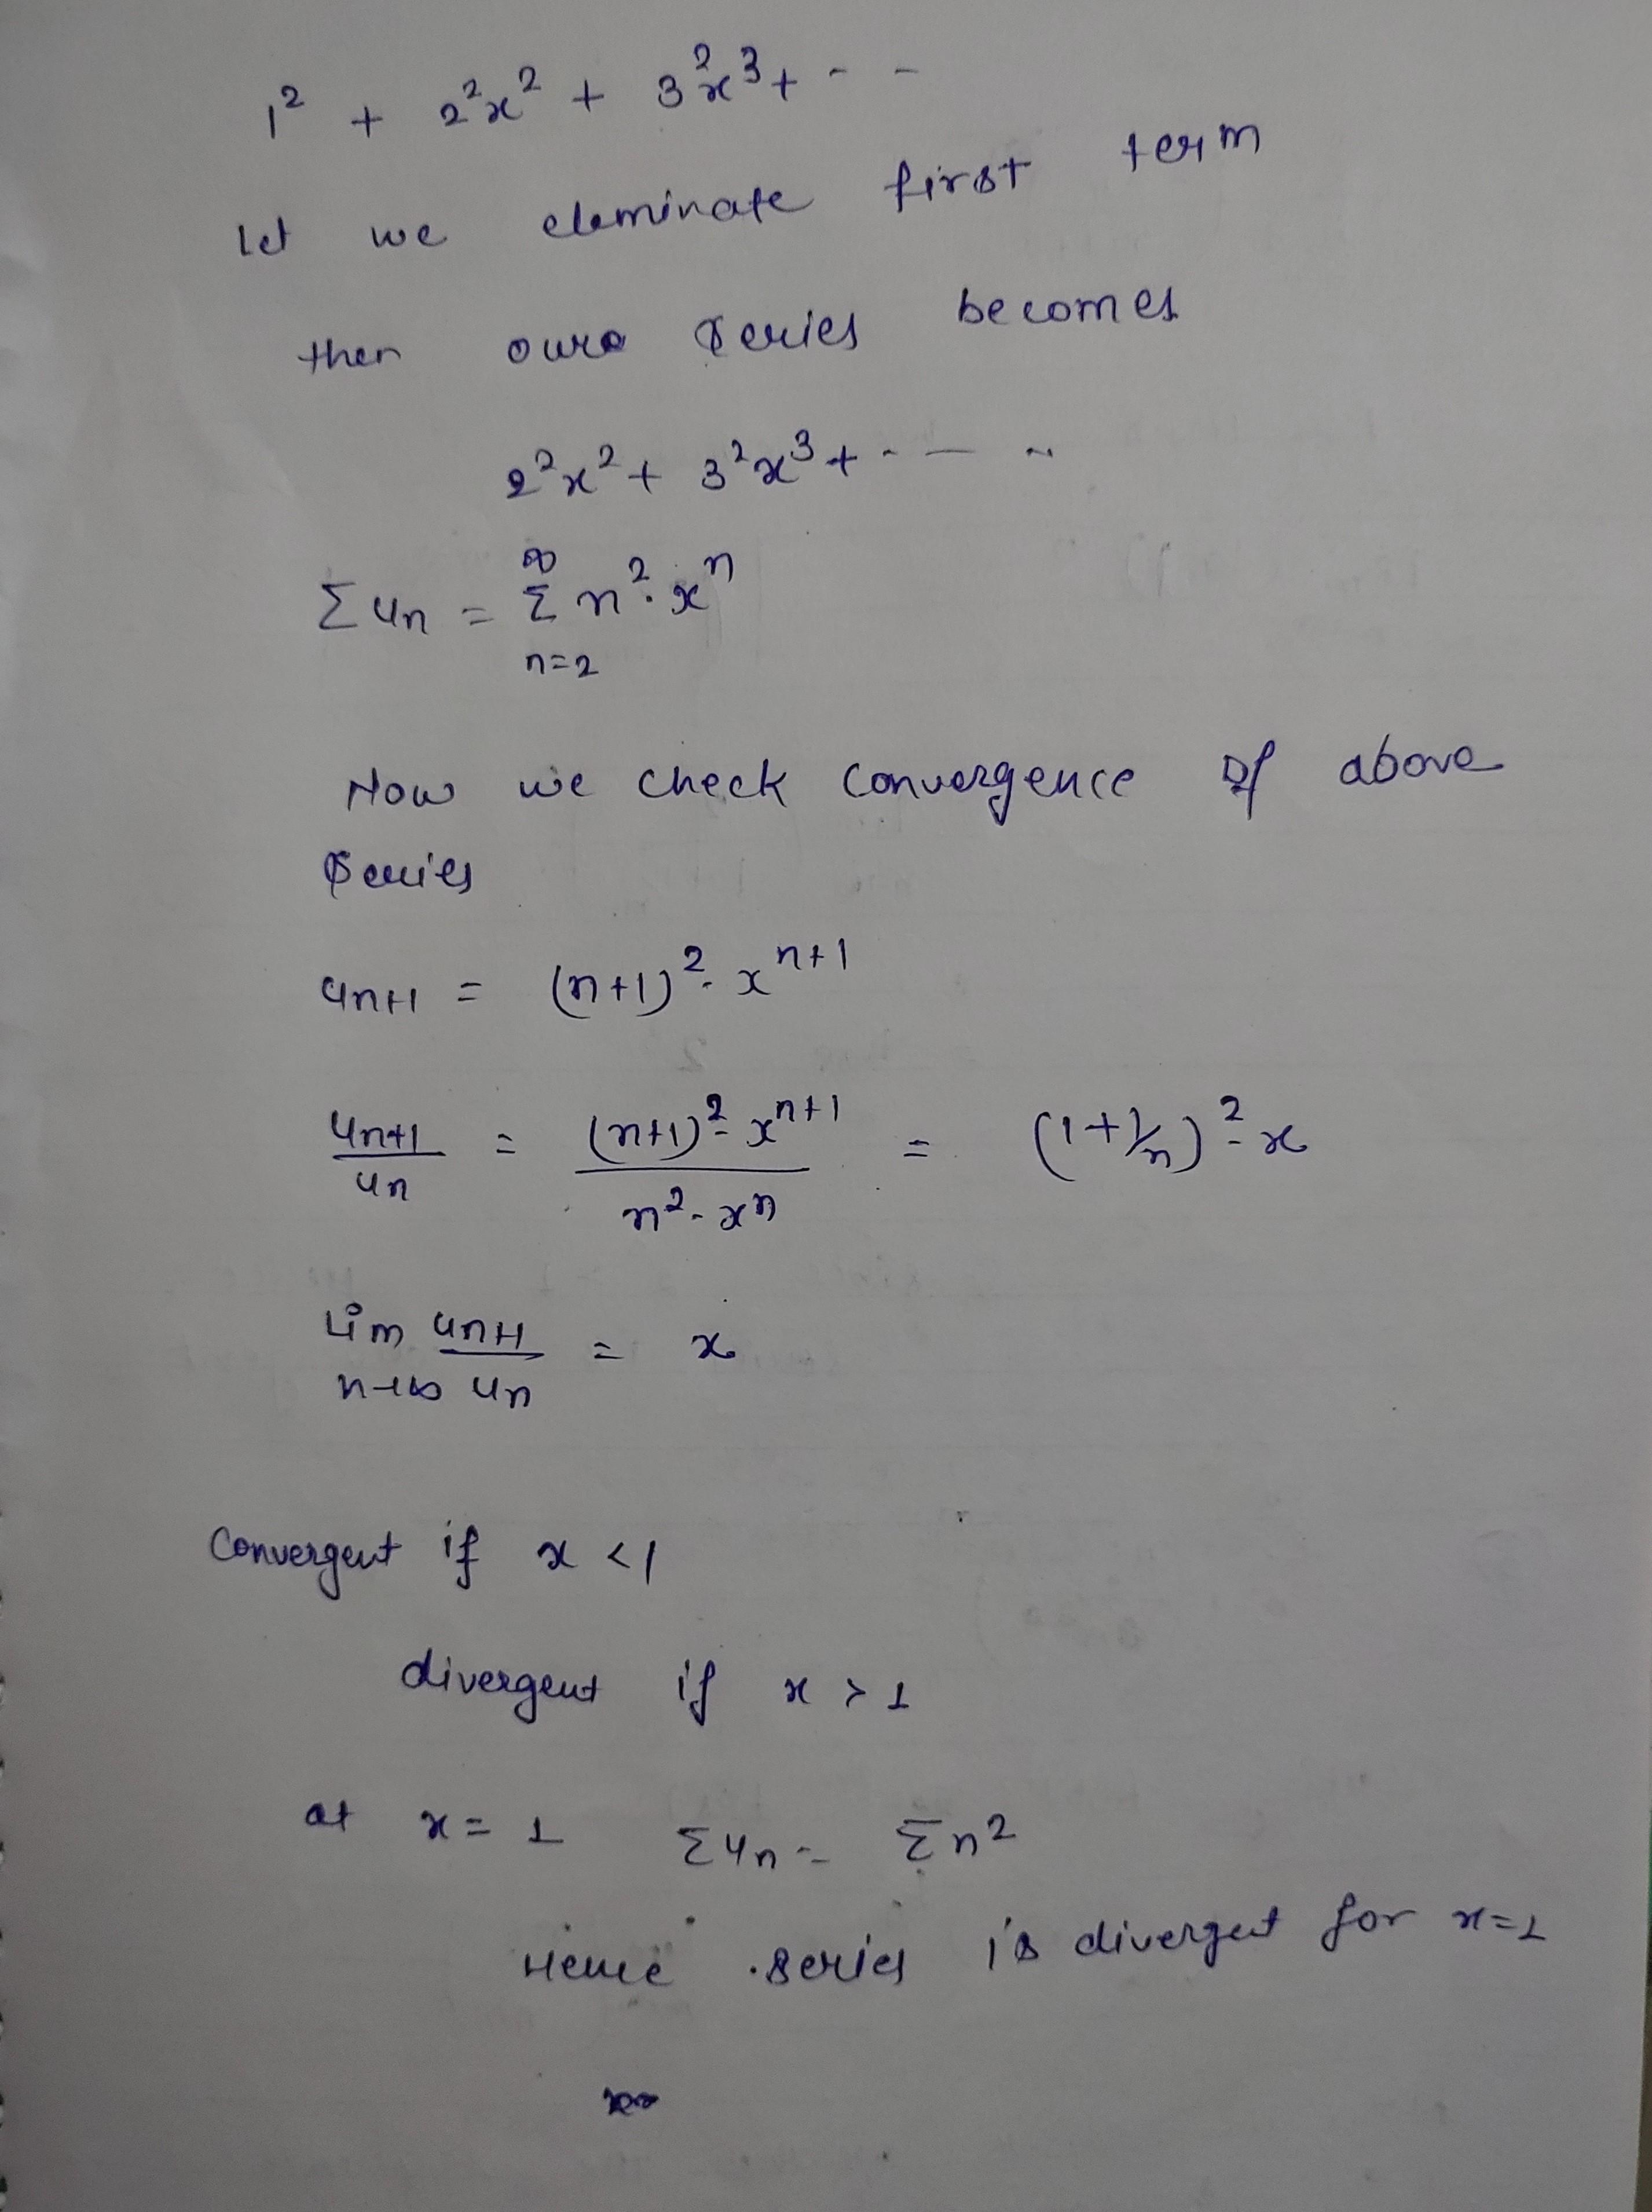 1² + 2²x² + 3²x³ + - -
Let we eleminate first term
then our series becomes
2²x² + 3²x³ + - - -
Σ un = ∞Σn=2 n². xⁿ
Now we check convergence of above
series
un+1 = (n+1)². xⁿ⁺¹
un+1/un = (n+1)². xⁿ⁺¹ / n². xⁿ = (1+1/n)². x
Lim n→∞ un+1/un = x
Convergent if x < 1
divergent if x > 1
at x = 1 Σun = Σn²
Hence series is divergent for x=1